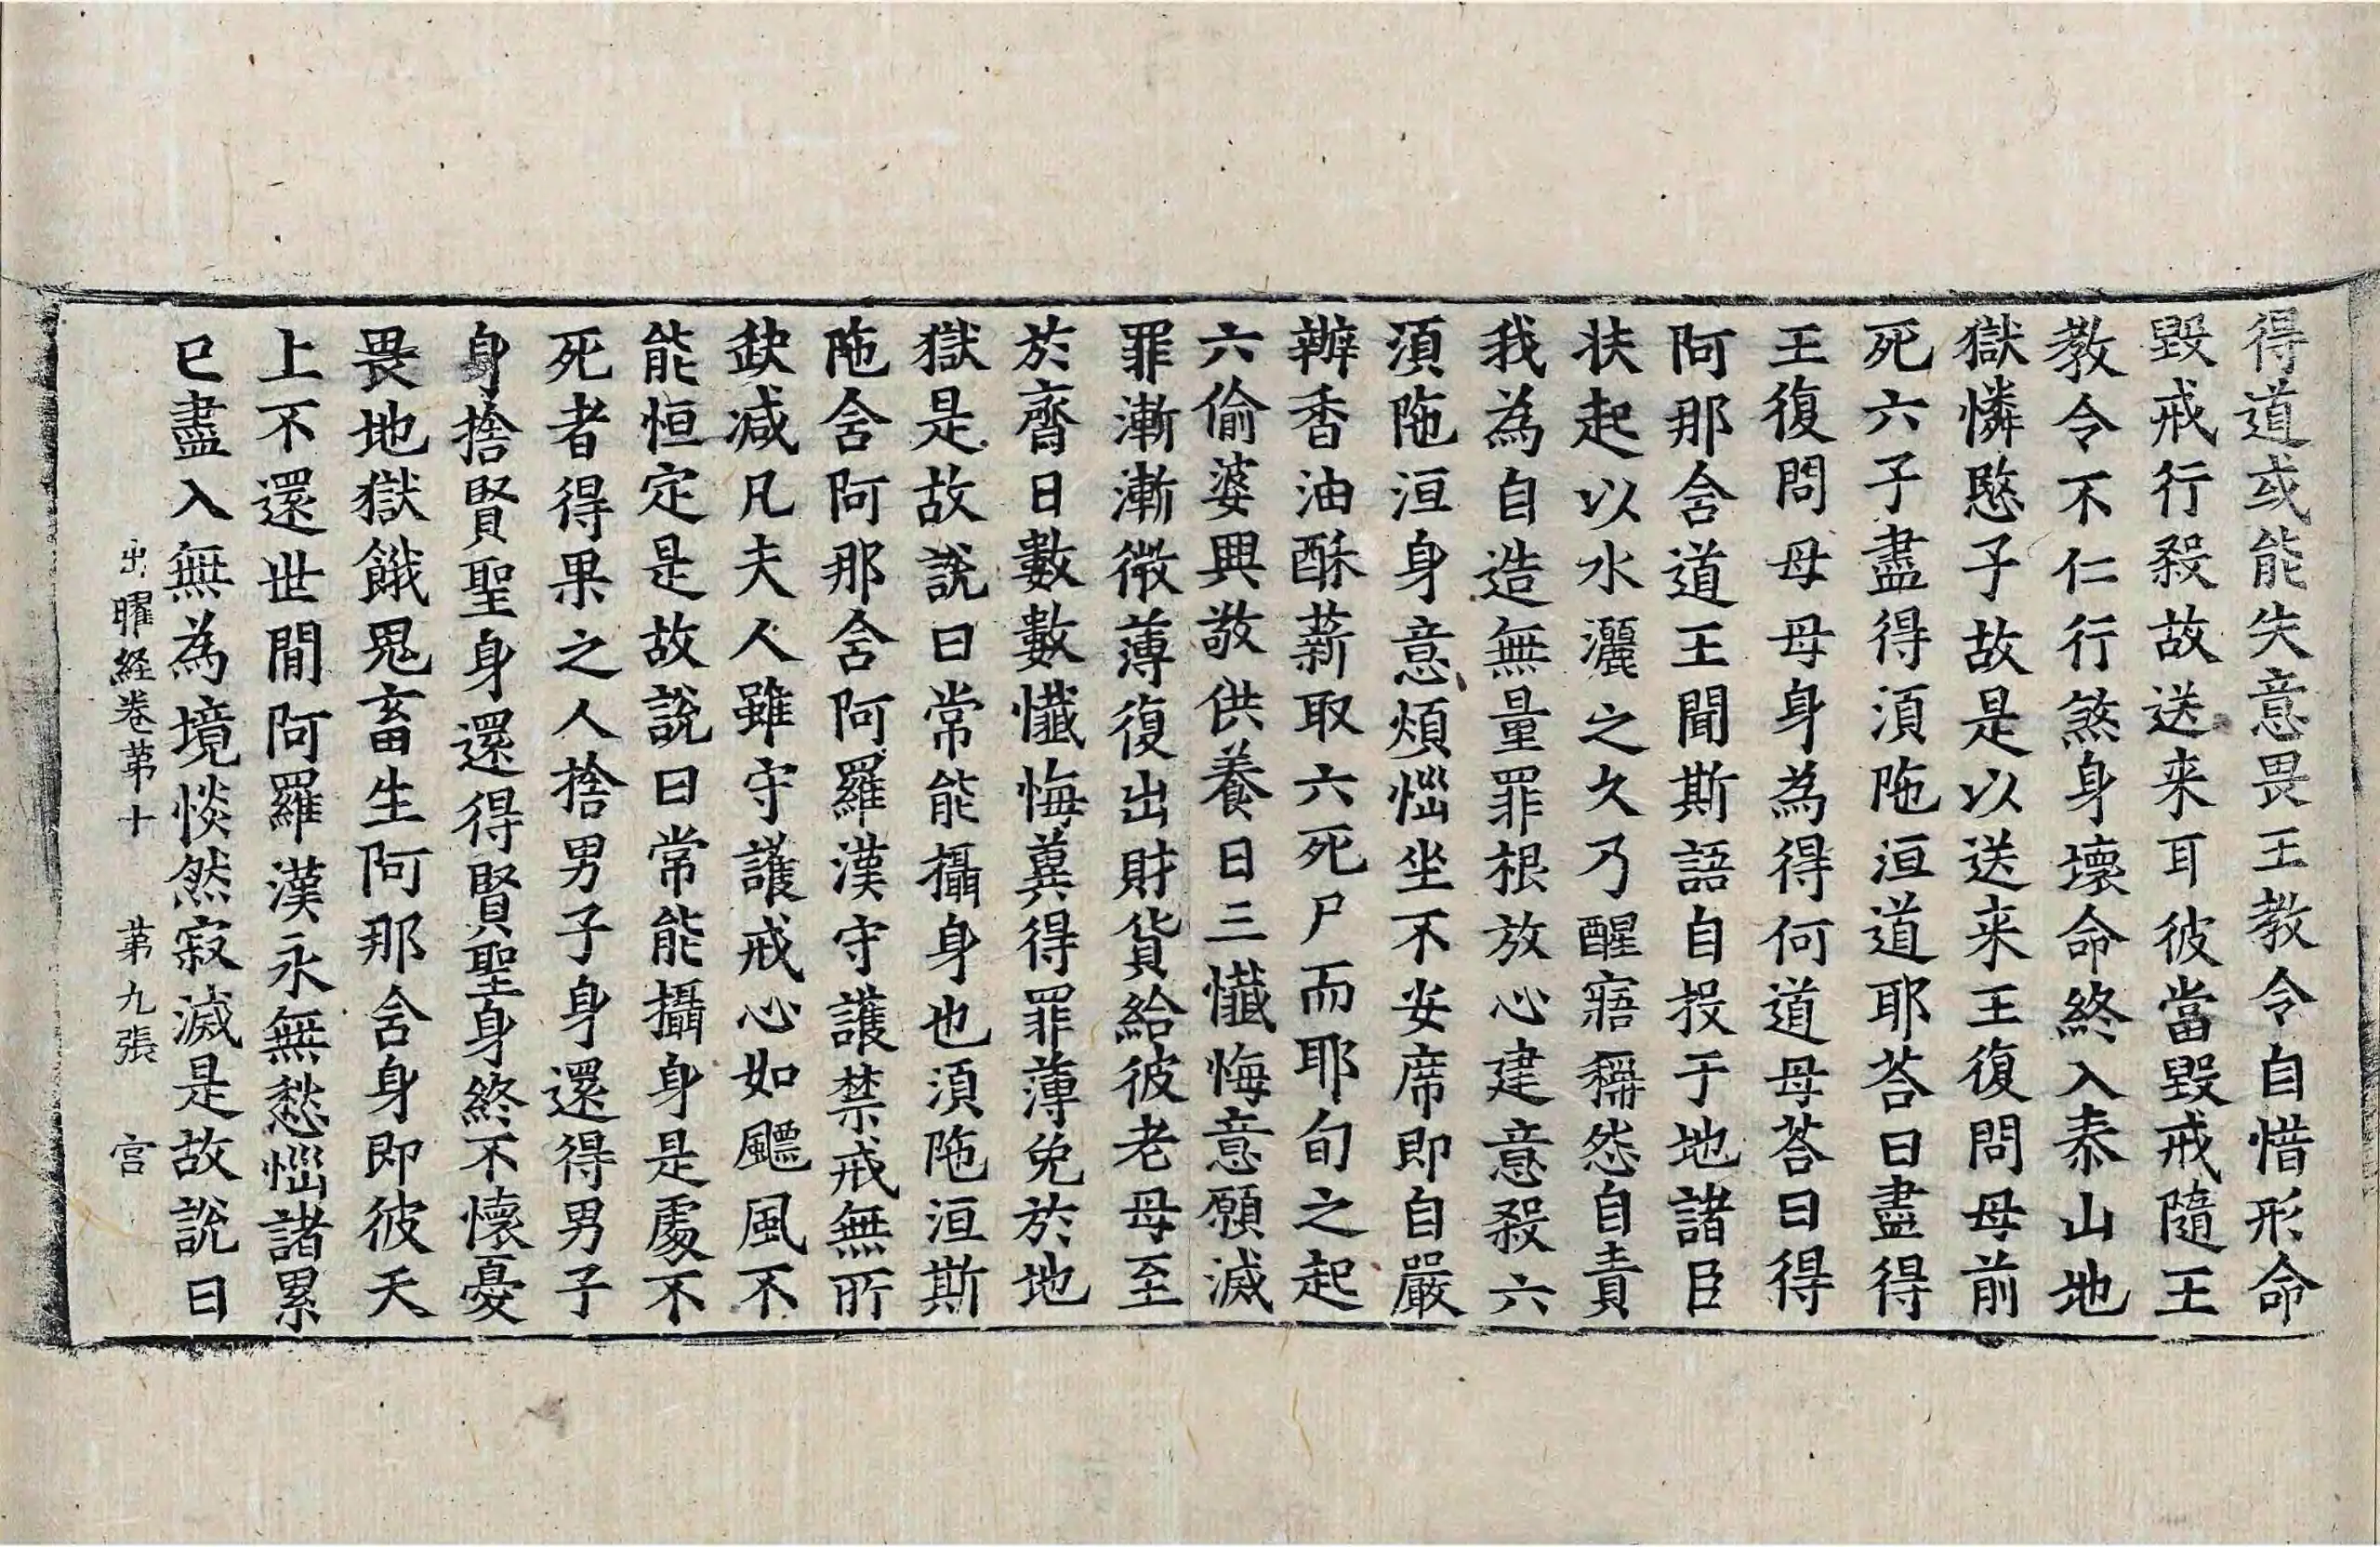 得道或能失意畏王教令自惜形命
毀戒行殺故送来耳彼當毀戒隨王
教令不仁行煞身壞命終入泰山地
獄憐愍子故是以送来王復問母前
死六子盡得湏陁洹道耶荅曰盡得
王復問母母身為得何道母荅曰得
阿那含道王聞斯語自投于地諸臣
扶起以水灑之久乃醒寤稱怨自責
我為自造無量罪根放心建意殺六
湏陁洹身意煩惱坐不安席即自嚴
辦香油酥薪取六死尸而耶旬之起
六偷婆興敬供養日三懺悔意願滅
罪漸漸微薄復出財貨給彼老母至
於齋日數數懺悔兾得罪薄免於地
獄是故說曰常能攝身也湏陁洹斯
陁含阿那含阿羅漢守護禁戒無所
缺减凡夫人雖守護戒心如飄風不
能恒定是故說曰常能攝身是處不
死者得果之人捨男子身還得男子
身捨賢聖身還得賢聖身終不懷憂
畏地獄餓鬼畜生阿那含身即彼天
上不還世間阿羅漢永無愁惱諸累
已盡入無為境惔然寂滅是故說曰
出曜経卷苐十　苐九張　宫